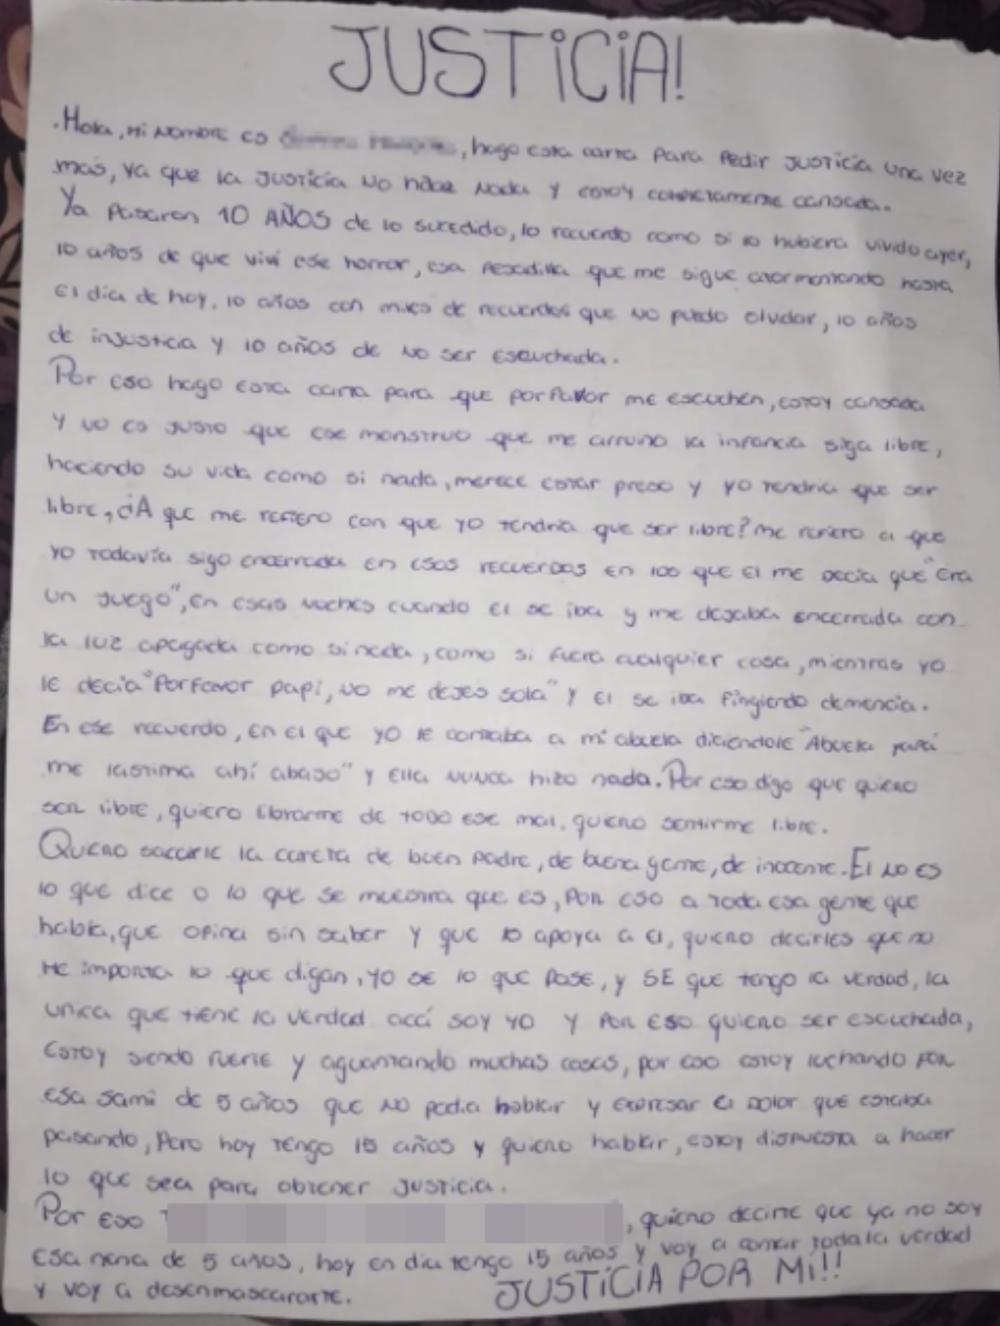 JUSTICIA!
. Hola, mi nombre es , hago esta carta para pedir justicia una vez
mas, ya que la justicia no hace nada y estoy completamente cansada.
Ya pasaron 10 AÑOS de lo sucedido, lo recuerdo como si lo hubiera vivido ayer,
10 años de que vivi ese horror, esa pesadilla que me sigue atormentando hasta
el dia de hoy, 10 años con miles de recuerdos que no puedo olvidar, 10 años
de injusticia y 10 años de no ser escuchada.
Por eso hago esta carta para que porfavor me escuchen, estoy cansada
y no es justo que ese monstruo que me arruino la infancia siga libre,
haciendo su vida como si nada, merece estar preso y yo tendria que ser
libre, ¿A que me refiero con que yo tendria que ser libre? me refiero a que
yo todavía sigo encerrada en esos recuerdos en los que el me decia que "era
un juego", en esas noches cuando el se iba y me dejaba encerrada con
la luz apagada como si nada, como si fuera cualquier cosa, mientras yo
le decia "Porfavor papi, no me dejes sola" y el se iba fingiendo demencia.
En ese recuerdo, en el que yo le contaba a mi abuela diciendole "Abuela papá
me lastima ahí abajo" y ella nunca hizo nada. Por eso digo que quiero
ser libre, quiero librarme de todo ese mal, quiero sentirme libre.
Quiero sacarle la careta de buen padre, de buena gente, de inocente. El no es
lo que dice o lo que se muestra que es, por eso a toda esa gente que
habla, que opina sin saber y que lo apoya a el, quiero decirles que no
me importa lo que digan, yo se lo que pase, y SE que tengo la verdad, la
unica que tiene la verdad acá soy yo y por eso quiero ser escuchada,
estoy siendo fuerte y aguantando muchas cosas, por eso estoy luchando por
esa sami de 5 años que no podia hablar y expresar el dolor que estaba
pasando, pero hoy tengo 15 años y quiero hablar, estoy dispuesta a hacer
lo que sea para obtener justicia.
Por eso , quiero decirte que ya no soy
esa nena de 5 años, hoy en dia tengo 15 años y voy a contar toda la verdad
y voy a desenmascararte.
JUSTICIA POR MI!!